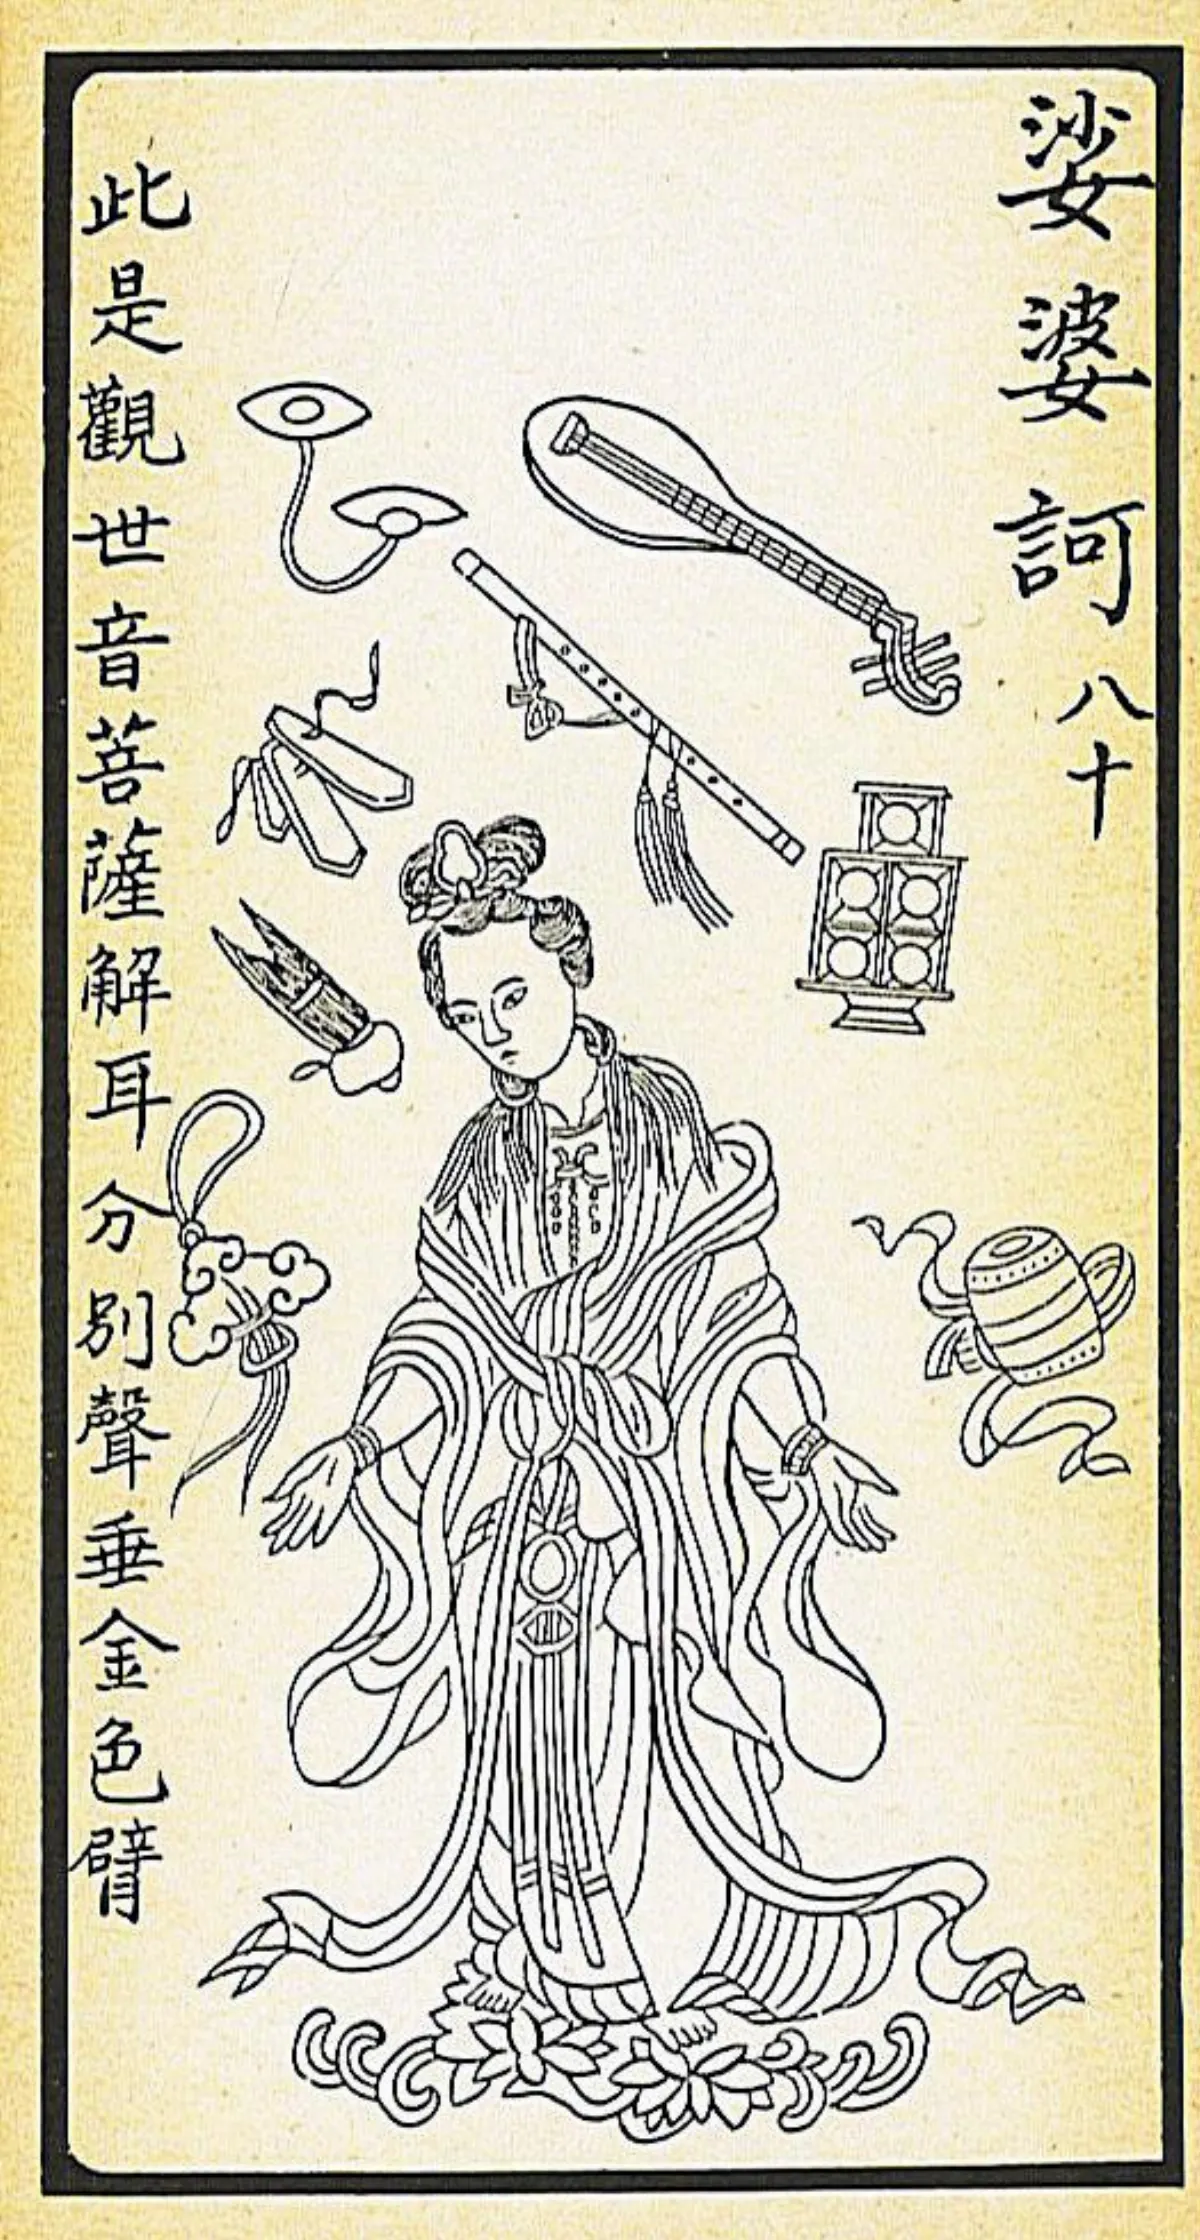 娑婆訶 八十
此是觀世音菩薩解耳分別聲垂金色臂